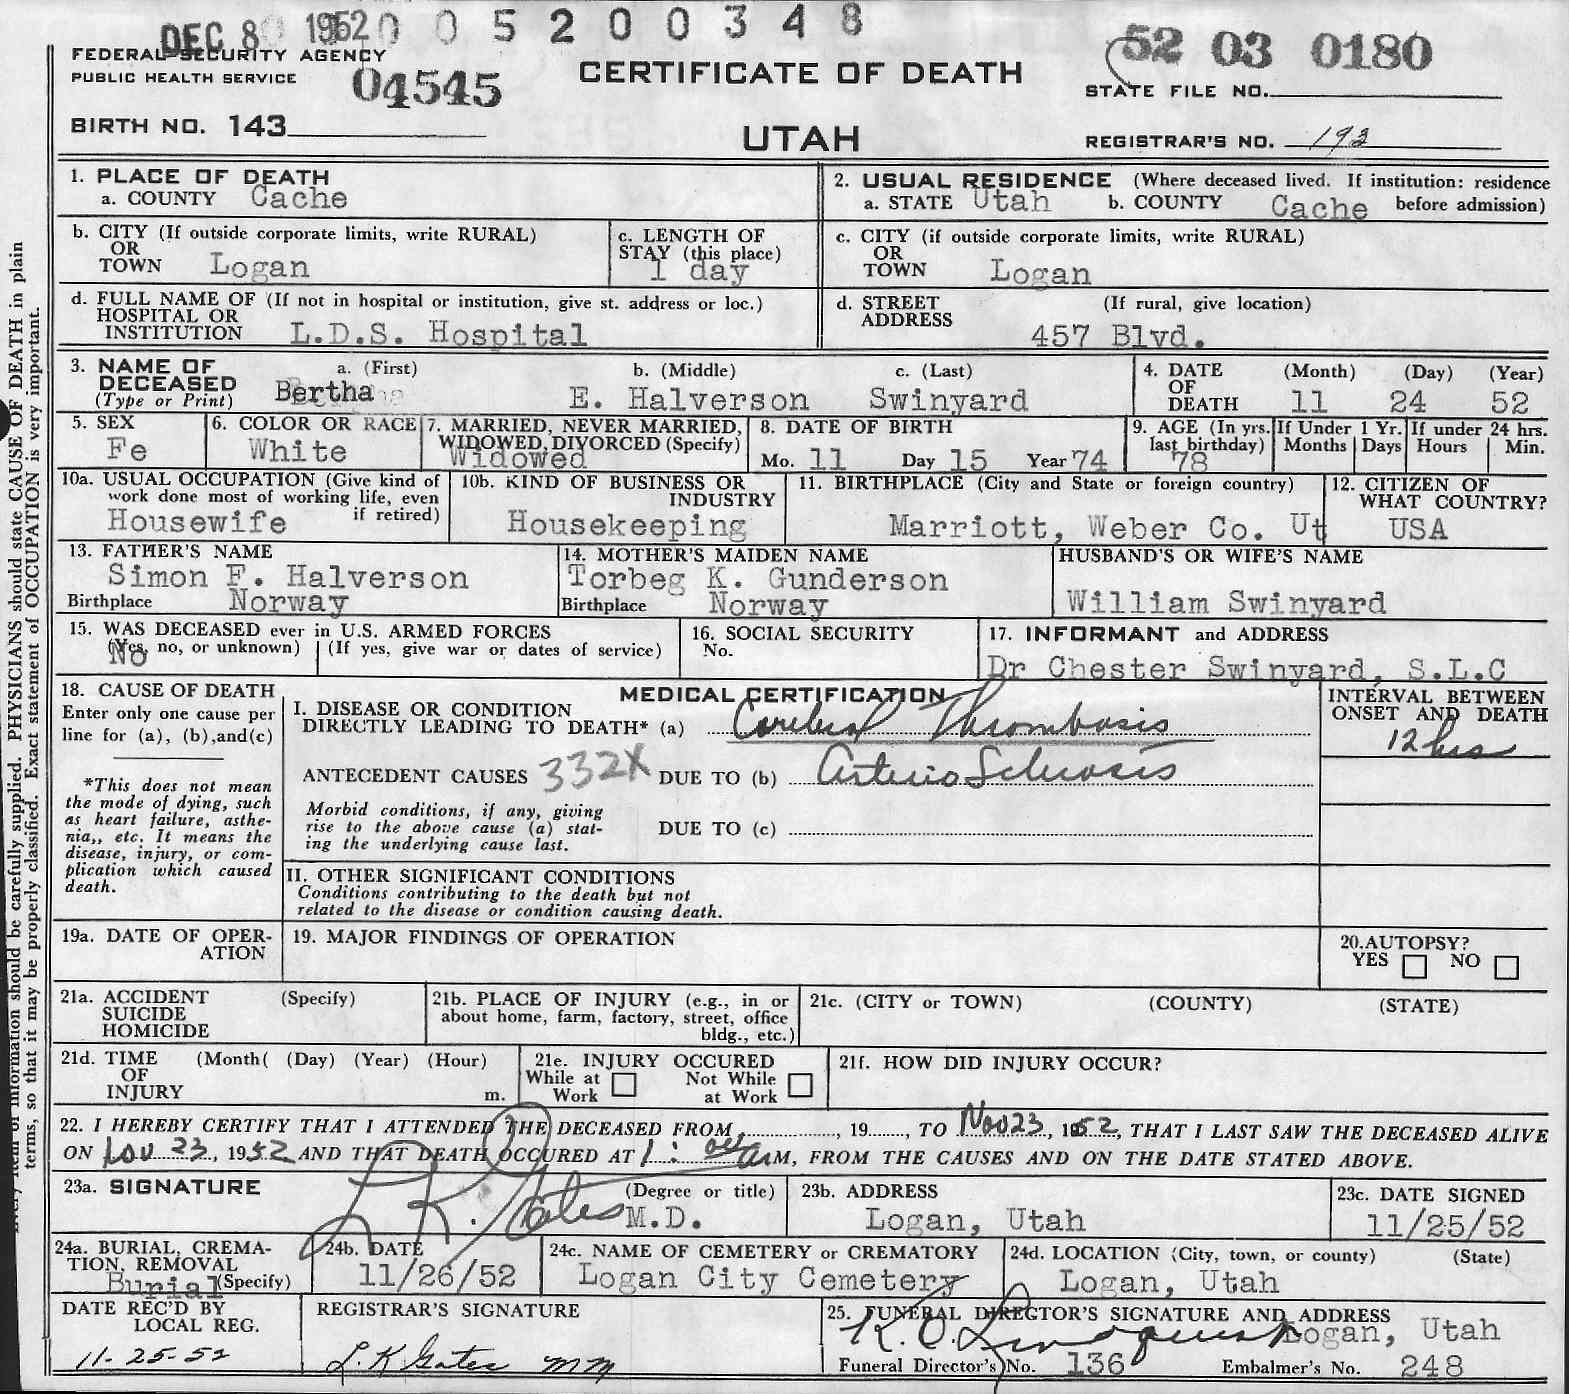 DEC 8 1952 0 0 5 2 0 0 3 4 8
FEDERAL SECURITY AGENCY
PUBLIC HEALTH SERVICE
04545
CERTIFICATE OF DEATH
52 03 0180
STATE FILE NO.
BIRTH NO. 143
UTAH
REGISTRAR'S NO. 193
1. PLACE OF DEATH
a. COUNTY Cache
2. USUAL RESIDENCE (Where deceased lived. If institution: residence
a. STATE Utah b. COUNTY Cache before admission)
b. CITY (If outside corporate limits, write RURAL)
OR
TOWN Logan
c. LENGTH OF
STAY (this place)
1 day
c. CITY (if outside corporate limits, write RURAL)
OR
TOWN Logan
d. FULL NAME OF (If not in hospital or institution, give st. address or loc.)
HOSPITAL OR
INSTITUTION L.D.S. Hospital
d. STREET (If rural, give location)
ADDRESS
457 Blvd.
3. NAME OF a. (First) b. (Middle) c. (Last)
DECEASED Bertha E. Halverson Swinyard
(Type or Print)
4. DATE (Month) (Day) (Year)
OF
DEATH 11 24 52
5. SEX
Fe
6. COLOR OR RACE
White
7. MARRIED, NEVER MARRIED,
WIDOWED, DIVORCED (Specify)
Widowed
8. DATE OF BIRTH
Mo. 11 Day 15 Year 74
9. AGE (In yrs. last birthday)
78
If Under 1 Yr.
Months Days
If under 24 hrs.
Hours Min.
10a. USUAL OCCUPATION (Give kind of
work done most of working life, even
if retired)
Housewife
10b. KIND OF BUSINESS OR
INDUSTRY
Housekeeping
11. BIRTHPLACE (City and State or foreign country)
Marriott, Weber Co. Ut
12. CITIZEN OF
WHAT COUNTRY?
USA
13. FATHER'S NAME
Simon F. Halverson
Birthplace Norway
14. MOTHER'S MAIDEN NAME
Torbeg K. Gunderson
Birthplace Norway
HUSBAND'S OR WIFE'S NAME
William Swinyard
15. WAS DECEASED ever in U.S. ARMED FORCES
(Yes, no, or unknown) (If yes, give war or dates of service)
No
16. SOCIAL SECURITY
No.
17. INFORMANT and ADDRESS
Dr Chester Swinyard, S.L.C
18. CAUSE OF DEATH
Enter only one cause per
line for (a), (b),and(c)
*This does not mean
the mode of dying, such
as heart failure, asthe-
nia,, etc. It means the
disease, injury, or com-
plication which caused
death.
MEDICAL CERTIFICATION
I. DISEASE OR CONDITION
DIRECTLY LEADING TO DEATH* (a) Cerebral Thrombosis
INTERVAL BETWEEN
ONSET AND DEATH
12 hrs
ANTECEDENT CAUSES 332X DUE TO (b) Arterio Sclerosis
Morbid conditions, if any, giving
rise to the above cause (a) stat-
ing the underlying cause last.
DUE TO (c)
II. OTHER SIGNIFICANT CONDITIONS
Conditions contributing to the death but not
related to the disease or condition causing death.
19a. DATE OF OPER-
ATION
19. MAJOR FINDINGS OF OPERATION
20.AUTOPSY?
YES NO
21a. ACCIDENT (Specify)
SUICIDE
HOMICIDE
21b. PLACE OF INJURY (e.g., in or
about home, farm, factory, street, office
bldg., etc.)
21c. (CITY or TOWN) (COUNTY) (STATE)
21d. TIME (Month( (Day) (Year) (Hour)
OF
INJURY m.
21e. INJURY OCCURED
While at Work Not While at Work
21f. HOW DID INJURY OCCUR?
22. I HEREBY CERTIFY THAT I ATTENDED THE DECEASED FROM , 19 , TO Nov 23, 1952, THAT I LAST SAW THE DECEASED ALIVE
ON Nov 23, 1952 AND THAT DEATH OCCURED AT 1:00 AM, FROM THE CAUSES AND ON THE DATE STATED ABOVE.
23a. SIGNATURE (Degree or title)
L K. Gates M.D.
23b. ADDRESS
Logan, Utah
23c. DATE SIGNED
11/25/52
24a. BURIAL, CREMA-
TION, REMOVAL
Burial (Specify)
24b. DATE
11/26/52
24c. NAME OF CEMETERY or CREMATORY
Logan City Cemetery
24d. LOCATION (City, town, or county) (State)
Logan, Utah
DATE REC'D BY
LOCAL REG.
11-25-52
REGISTRAR'S SIGNATURE
L. K Gates MM
25. FUNERAL DIRECTOR'S SIGNATURE AND ADDRESS
K. O. Lindquist Logan, Utah
Funeral Director's No. 136 Embalmer's No. 248
Every item of information should be carefully supplied. PHYSICIANS should state CAUSE OF DEATH in plain
terms, so that it may be properly classified. Exact statement of OCCUPATION is very important.